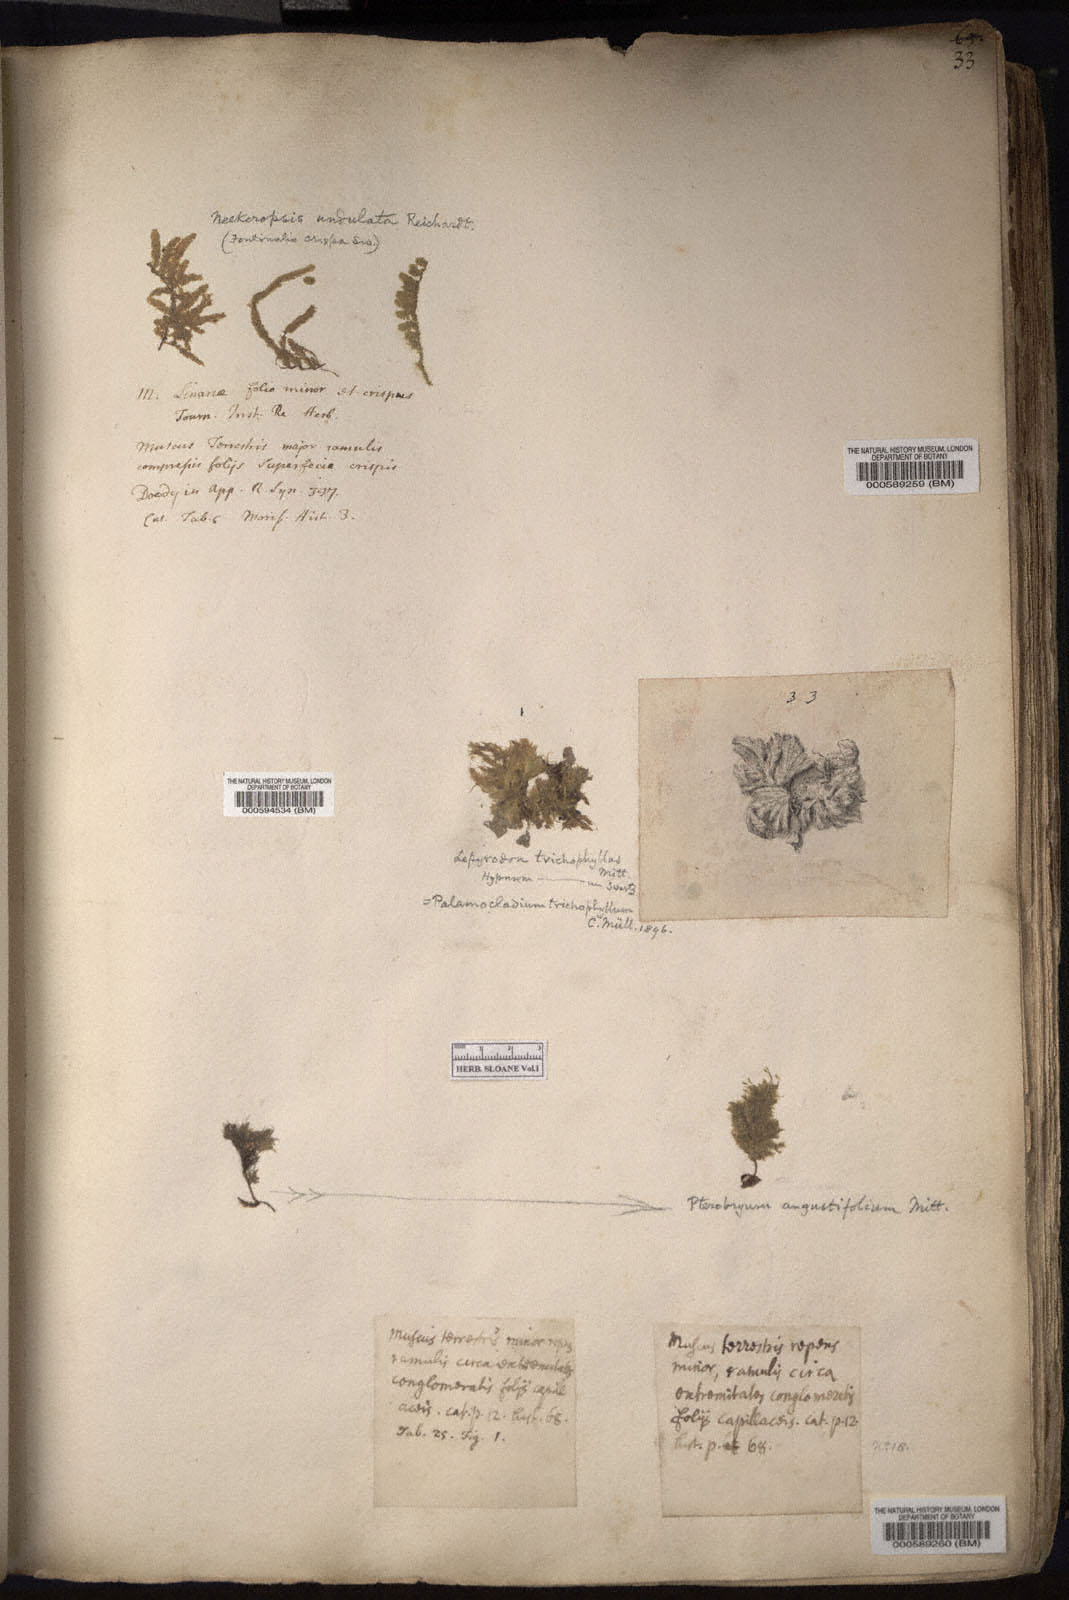 65.
33
Neckeropsis undulata Reichardt.
(Fontinalis crispa Sw.)
M. Linariæ folio minor et crispus
Tourn. Inst. Re Herb.
Muscus Terrestris major ramulis
compressis folijs superficie crispis
Doody in App. R. Syn. 337.
Cat. Tab. 5 Moris. Hist. 3.
THE NATURAL HISTORY MUSEUM, LONDON
DEPARTMENT OF BOTANY
000589259 (BM)
33
1
THE NATURAL HISTORY MUSEUM, LONDON
DEPARTMENT OF BOTANY
000594534 (BM)
Lepyrodon trichophyllus
Mitt.
Hypnum ——— um Swartz
= Palamocladium trichophyllum
C. Müll. 1896.
1 2 3
HERB. SLOANE Vol.1
Pterobryum angustifolium Mitt.
Muscus terrestris minor repens
ramulis circa extremitates
conglomeratis folijs capill
aceis. cat. p. 12. hist. 68.
Tab. 25. Fig. 1.
Muscus terrestris repens
minor, ramulis circa
extremitates conglomeratis
folijs capillaceis. cat. p. 12.
hist. p. 68.
No 18.
THE NATURAL HISTORY MUSEUM, LONDON
DEPARTMENT OF BOTANY
000589260 (BM)